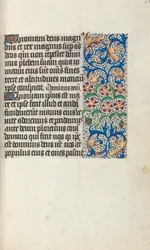 Quoniam deus magn
dns et rex magnus sup os
deos qm non repellet domi
nus plebem suam quia in
manu eius sut oms fines
terre et altitudines montiu
ipse conspicit
Quoniam ipsius est ma
re et ipse fecit illud et aridā
fundaverunt manus eius
venite adoremus et procidam
ante deum ploremus coram
domino qui fecit nos qr ip
est dominus deus nr nos at
populus eius et oues pascue